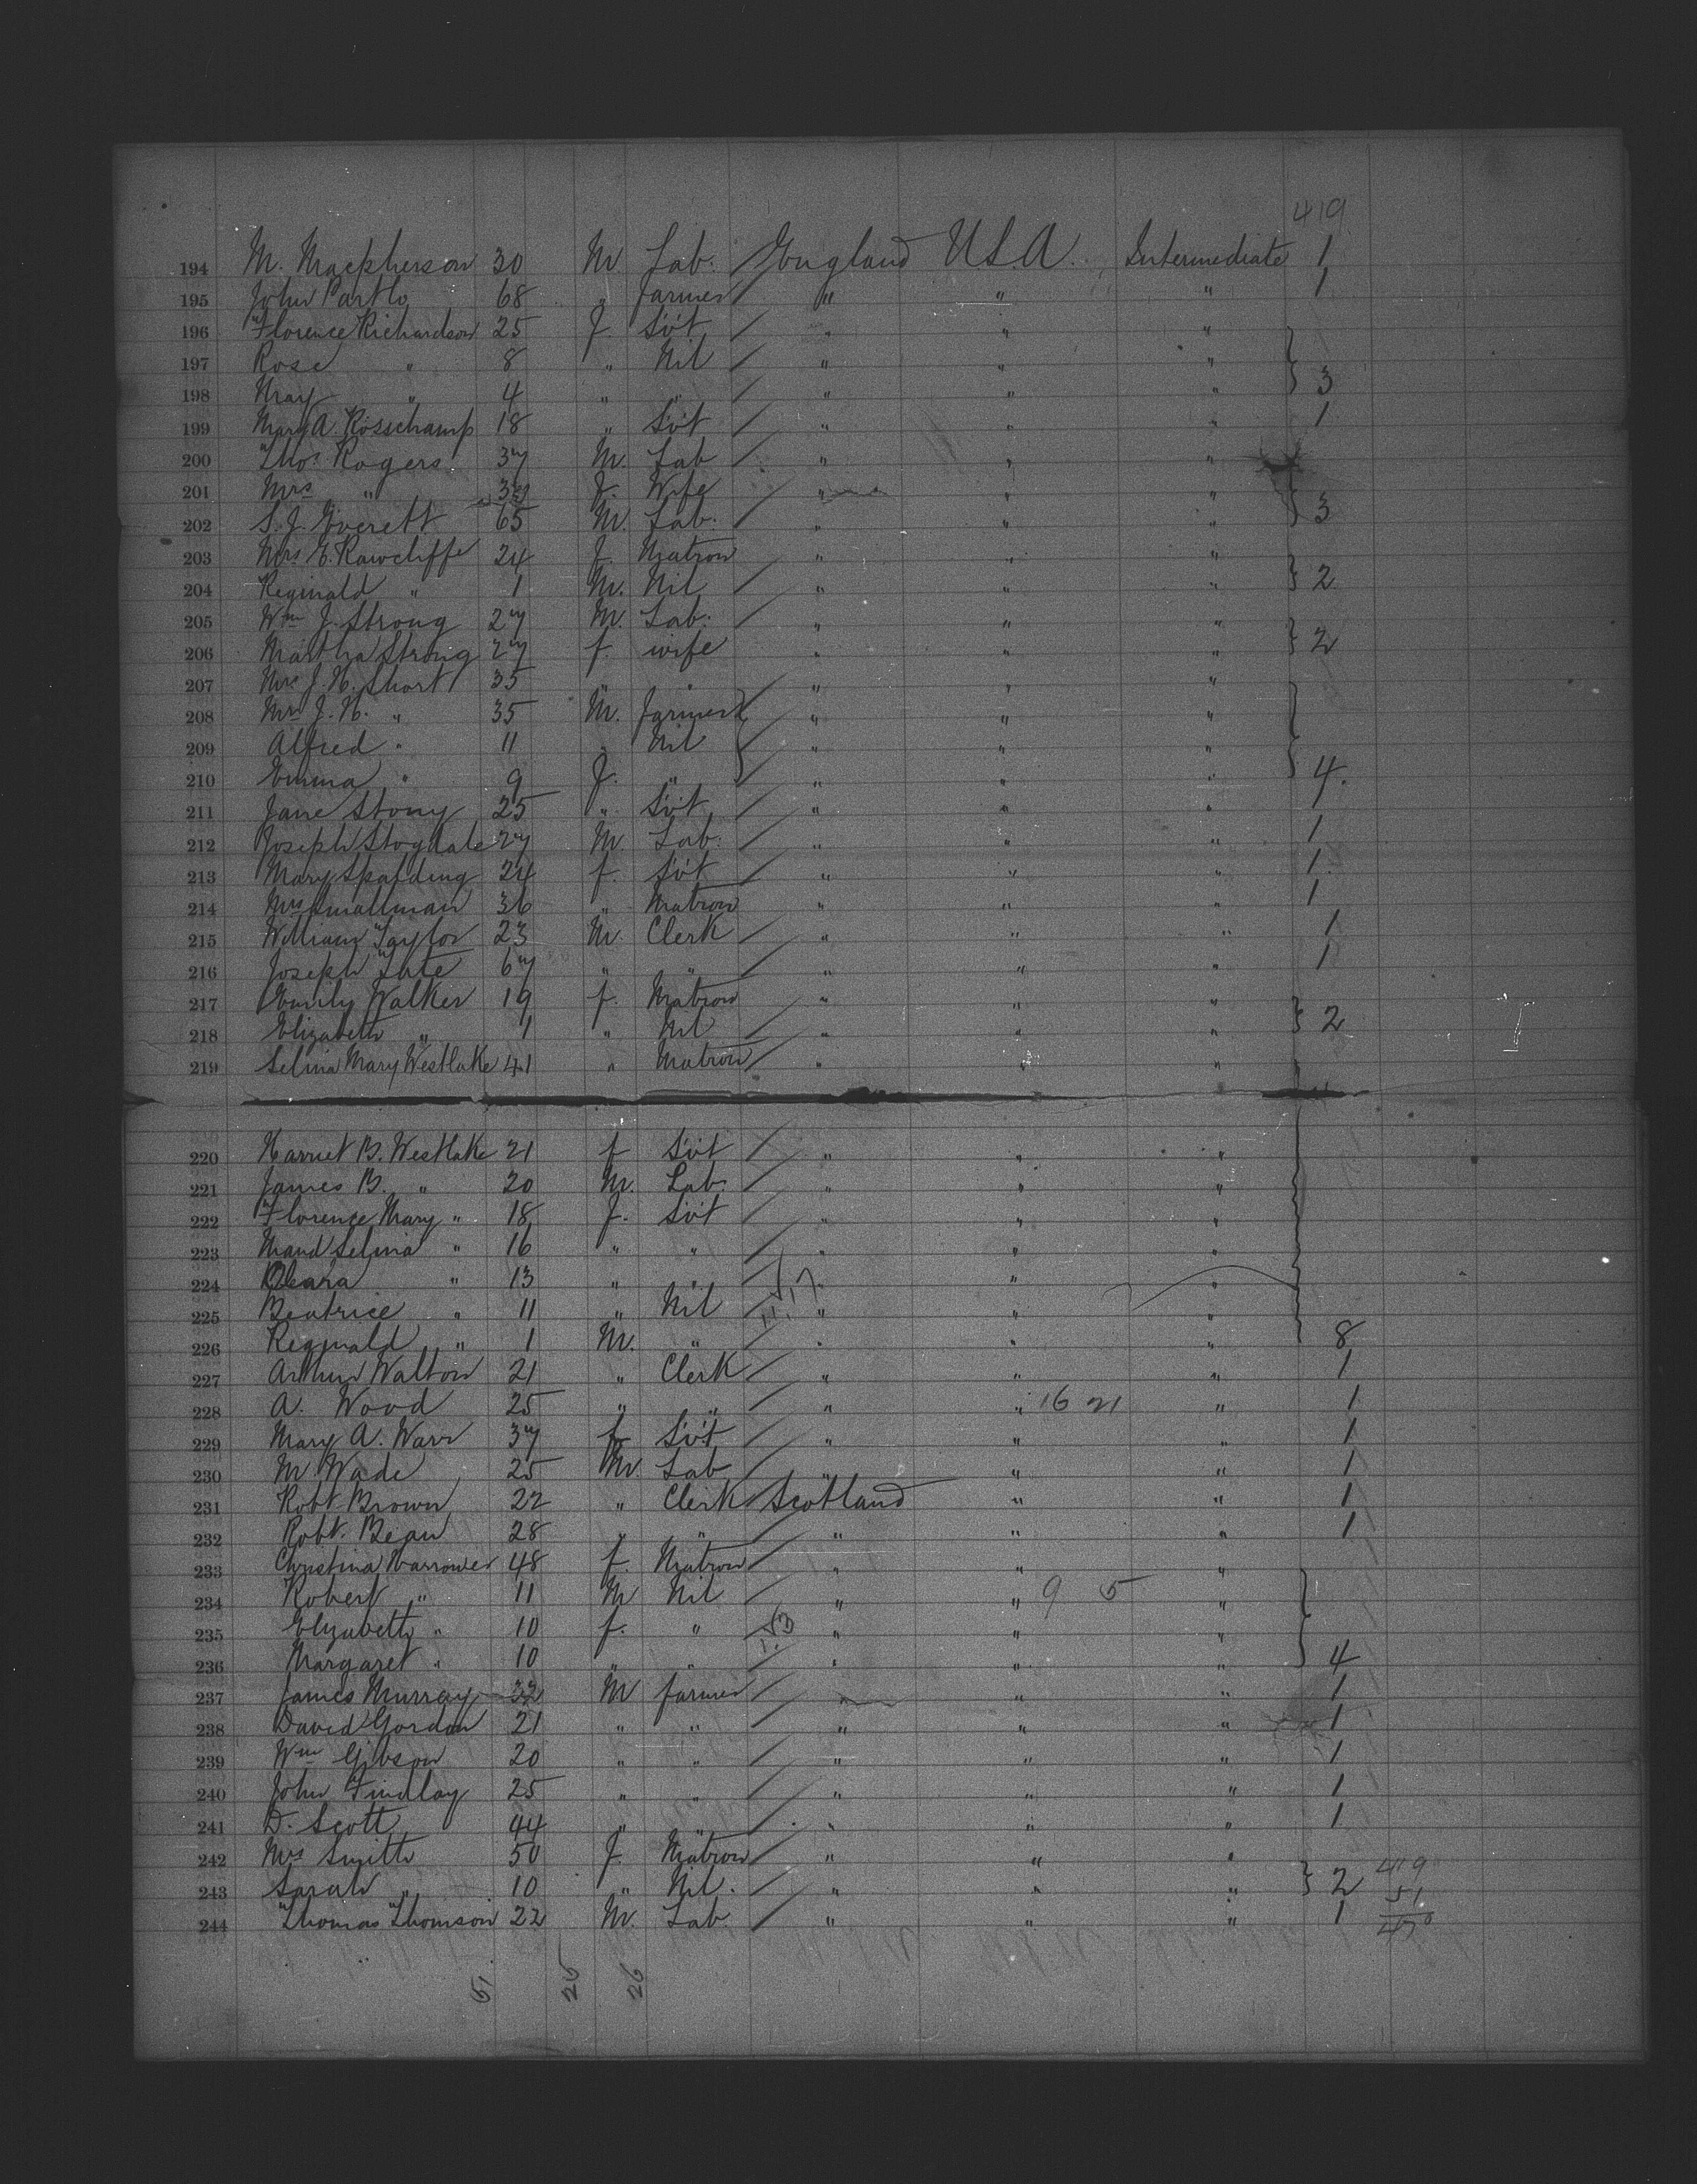 419
194 M. Macpherson 30 M Lab. England U.S.A. Intermediate 1
195 John Partlo 68 " farmer " " " 1
196 Florence Richardson 25 f Svt " " "
197 Rose " 8 " Nil " " "
198 May " 4 " " " " " 3
199 Mary A. Rosschamp 18 " Svt " " " 1
200 Thos Rogers 37 M. Lab " " "
201 Mrs " f. Wife " " "
202 S. J. Everett 65 M. Lab. " " " 3
203 Mrs E. Rawcliffe 24 f Matron " " "
204 Reginald " 1 M. Nil " " " 2
205 Wm J. Strong 27 M. Lab. " " "
206 Martha Strong 27 f. wife " " " 2
207 Mrs J. H. Short 35 " " " " "
208 Mr J. H. " 35 M. Farmer " " "
209 Alfred " 11 " Nil " " "
210 Emma " 9 f. " " " " 4.
211 Jane Stony 25 " Svt " " " 1
212 Joseph Stogdale 27 M. Lab. " " " 1
213 Mary Spalding 24 f. Svt " " " 1
214 Mrs Smallman 36 " Matron " " " 1
215 William Taylor 23 M. Clerk " " " 1
216 Joseph Tate 67 " " " " " 1
217 Emily Walker 19 f. Matron " " "
218 Elizabeth " 1 " Nil " " " 2
219 Selina Mary Westlake 41 " Matron " " "
220 Harriet B. Westlake 21 f Svt " " "
221 James B. " 20 M. Lab. " " "
222 Florence Mary " 18 f. Svt " " "
223 Maud Selina " 16 " " " " "
224 Clara " 13 " " " " "
225 Beatrice " 11 " Nil " " "
226 Reginald " 1 M. " " " " 8
227 Arthur Walton 21 " Clerk " " " 1
228 A. Wood 25 " " " " 16 21 " 1
229 Mary A. Warr 37 f Svt " " " 1
230 M Wade 25 M. Lab " " " 1
231 Robt. Brown 22 " Clerk Scotland " " 1
232 Robt. Bean 28 " " " " " 1
233 Christina Harrower 48 f. Matron " " "
234 Robert " 11 M Nil " " 9 5 "
235 Elizabeth " 10 f. " " " "
236 Margaret " 10 " " " " " 4
237 James Murray 32 M farmer " " " 1
238 David Gordon 21 " " " " " 1
239 Wm Gibson 20 " " " " " 1
240 John Findlay 25 " " " " " 1
241 D. Scott 44 " " " " " 1
242 Mrs Smith 50 f. Matron " " " 419
243 Sarah " 10 " Nil. " " " 2 51
244 Thomas Thomson 22 M. Lab. " " " 1 470
51 25 26